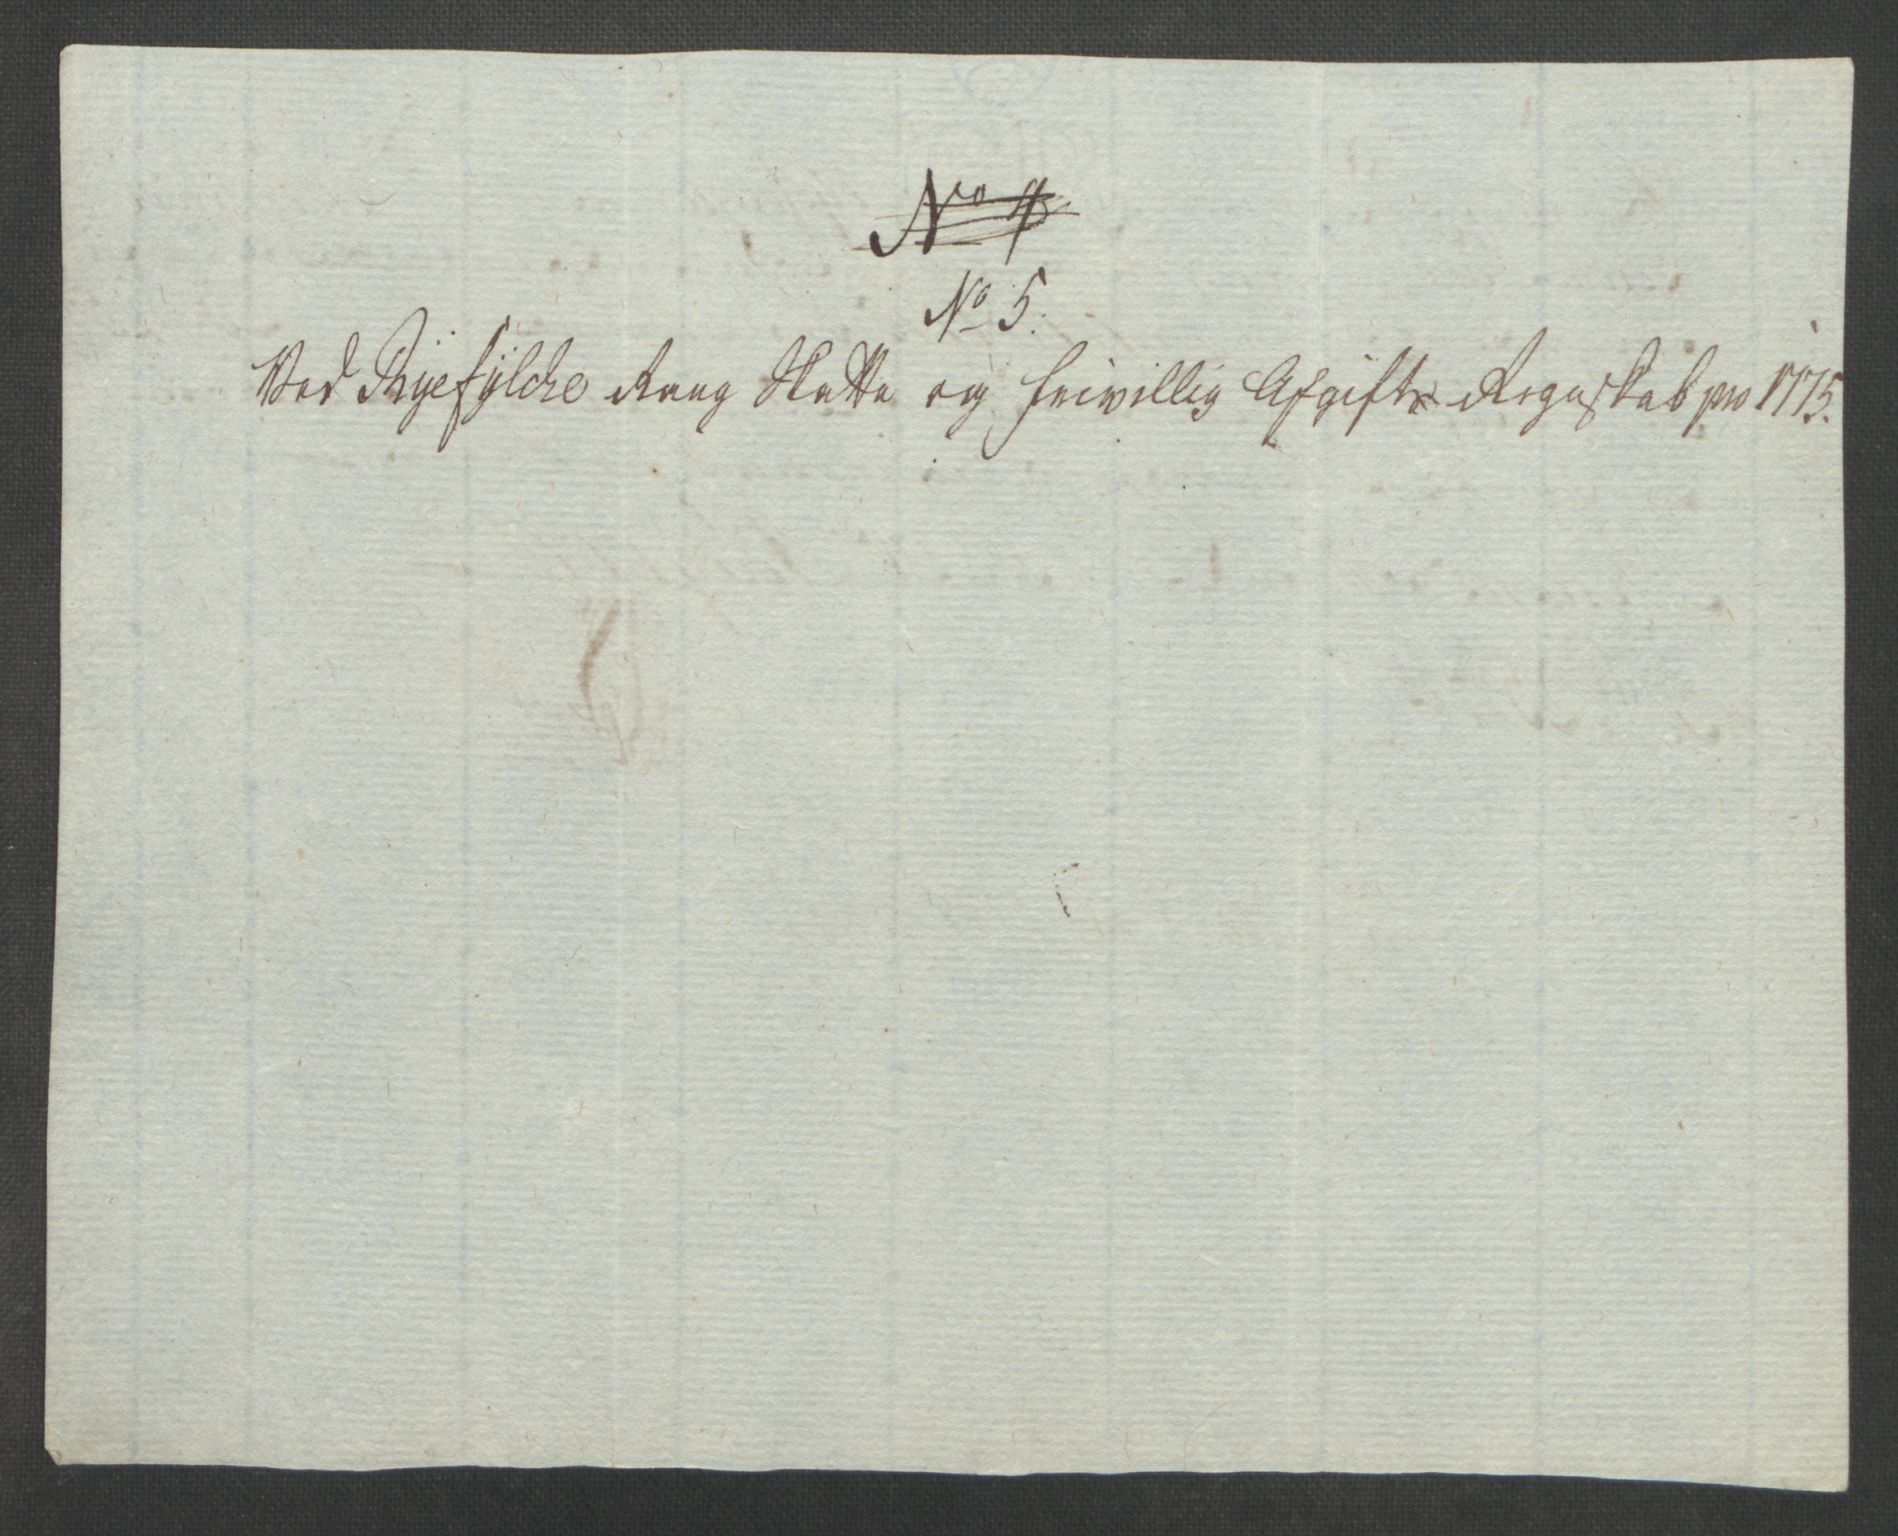 No 4
No 5.
Ved Ryefylche Rang Skatte og frivillig Afgifts Regnskab pro 1775.